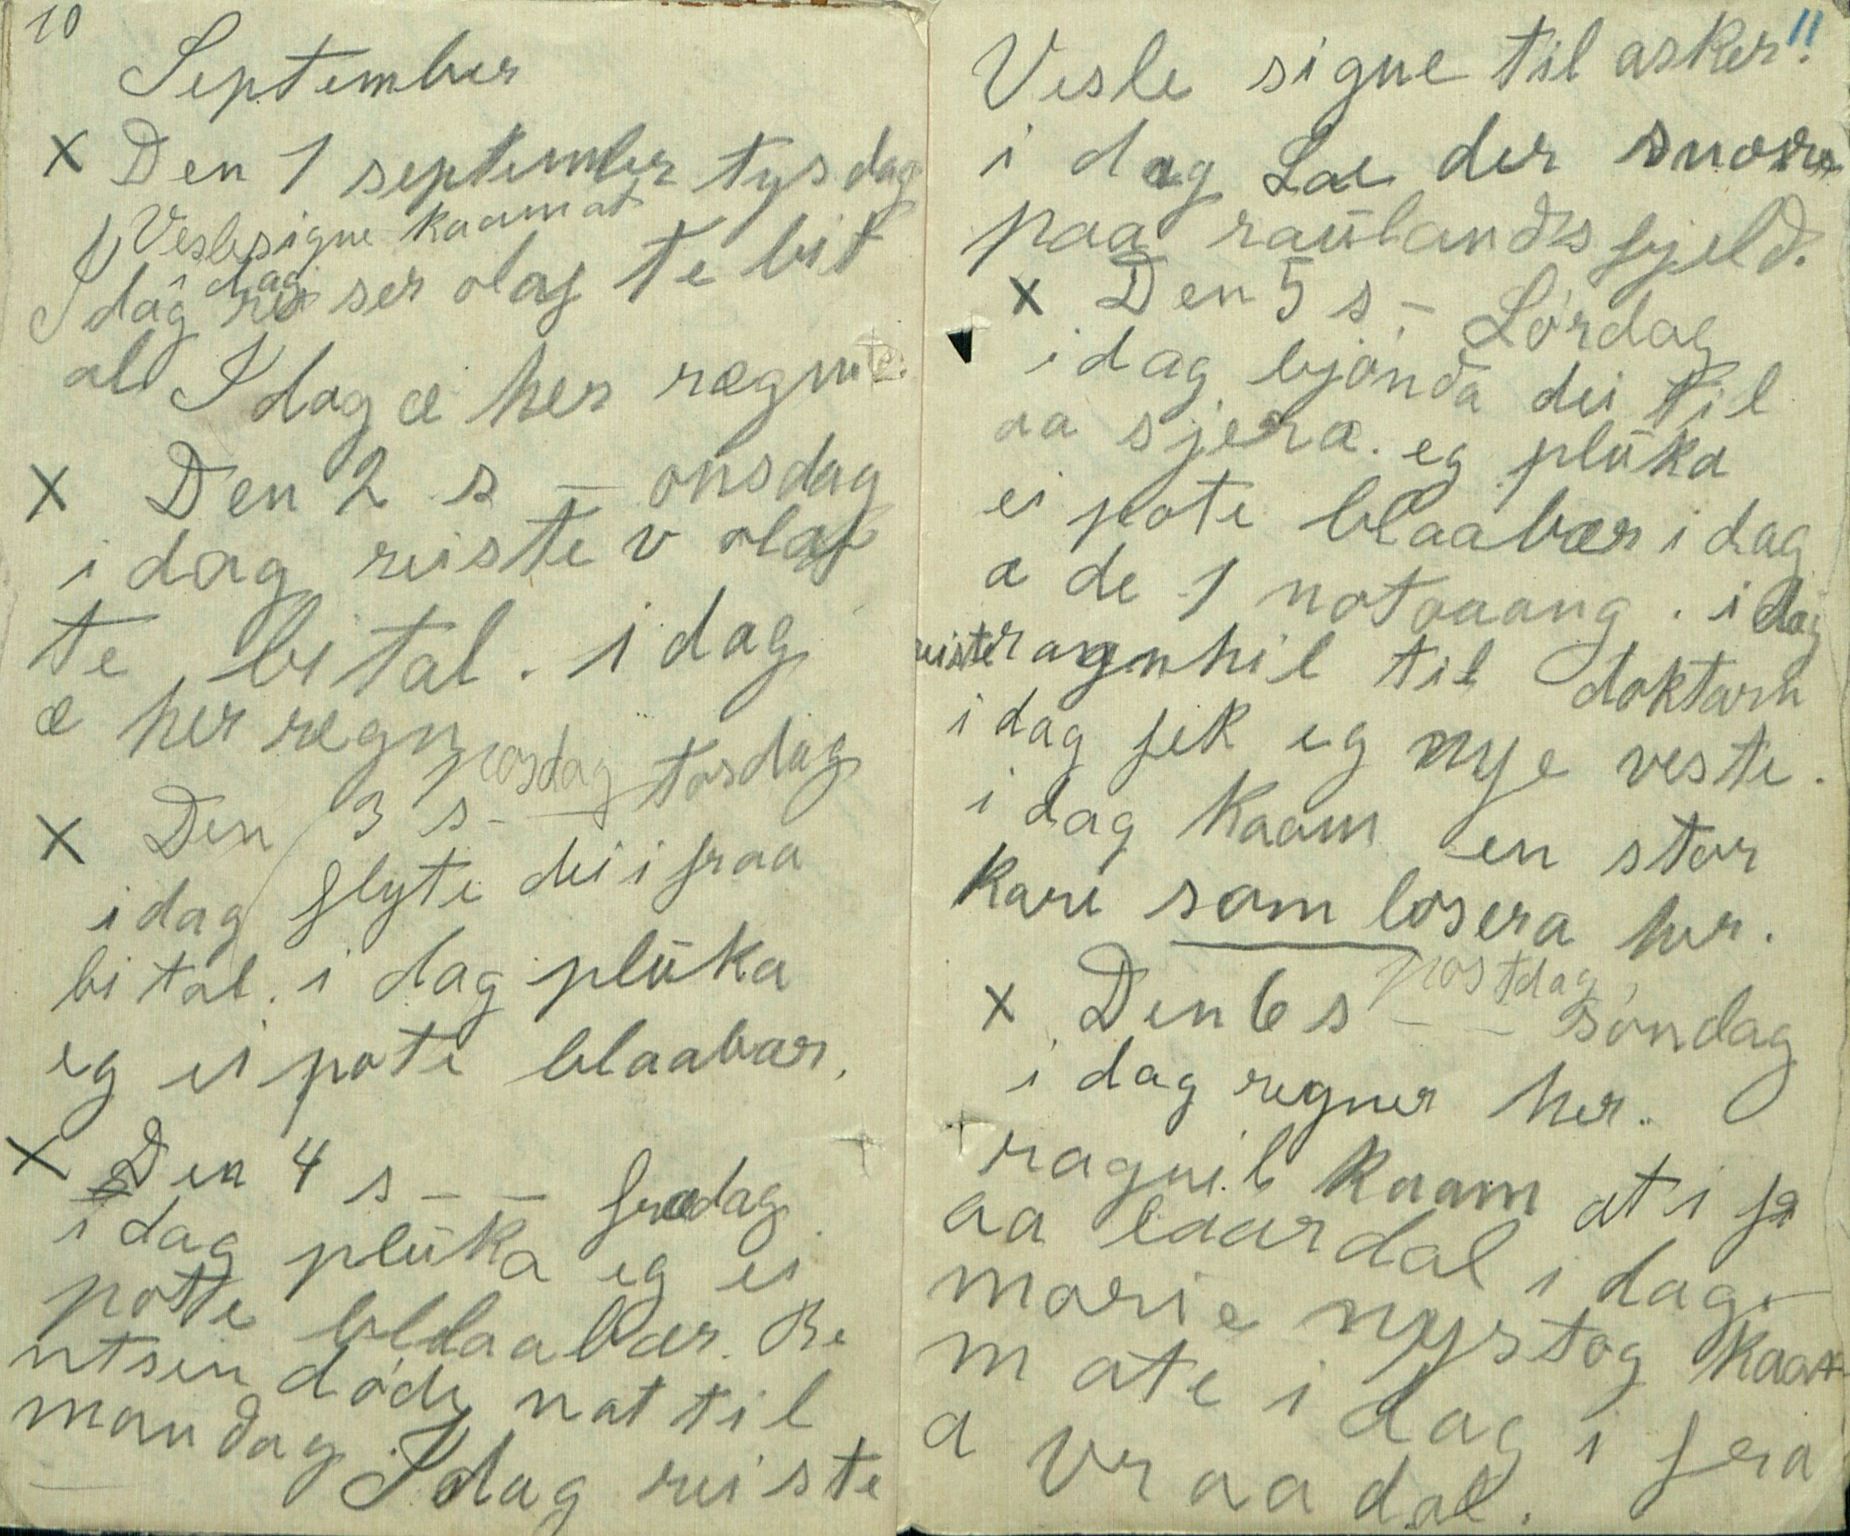 10
September
X Den 1 september tysdag
Veslesigne kaam at
i dag
I dag reiser olaf te bit
al I dag æ her rægn
X Den 2 s – onsdag
i dag reiste v olaf
te bital. i dag
æ her rægn
posdag
X Den 3 s – torsdag
i dag flyte dei i fraa
bital. i dag plūka
eg ei pote blaabær.
X Den 4 s – – fredag
i dag plūka eg ei
potte blaabær. Be
ntsen døde nat til
mandag. I dag reiste
11
Vesle signe til asker!
i dag Lae der snow
paa raūlands fjeld.
X Den 5 s – Lørdag
i dag bjønda dei til
aa sjera. eg plūka
ei pote blaabær i dag
a de 1 notoaang. i dag
reiste ragnhil til doktarn
i dag fek eg nye veste.
i dag kaam en stor
kare som losera her.
postdag
X Den 6 s – – søndag
i dag regner her.
ragnil kaam at i fr
aa laardal i dag.
marie nystog kaa
m ate i dag i fra
a vraadal.